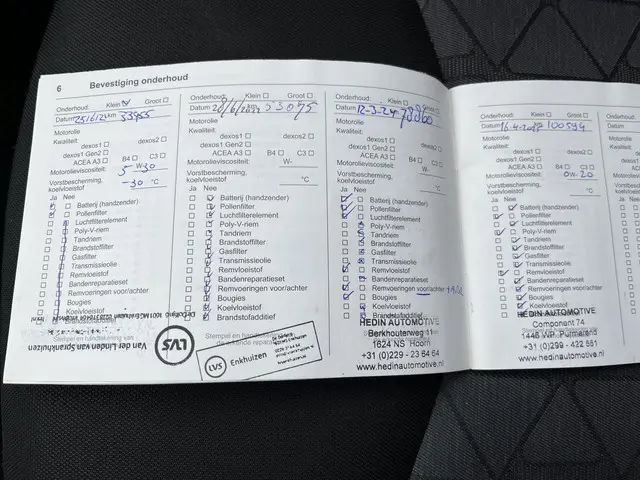 6
Bevestiging onderhoud
Onderhoud: Klein Groot
Datum km 53955
Motorolie
Kwaliteit:
dexos1 dexos2
dexos1 Gen2
ACEA A3 B4 C3
Motorolieviscositeit: 5 W-30
Vorstbescherming, koelvloeistof -30 °C
Ja Nee
Batterij (handzender)
Pollenfilter
Luchtfilterelement
Poly-V-riem
Tandriem
Brandstoffilter
Gasfilter
Transmissieolie
Remvloeistof
Bandenreparatieset
Remvoeringen voor/achter
Bougies
Koelvloeistof
Van der Linden van Span Enkhuizen
LVS
Onderhoud: Klein Groot
Datum 53075
Motorolie
Kwaliteit:
dexos1 dexos2
dexos1 Gen2
ACEA A3 B4 C3
Motorolieviscositeit: W-
Vorstbescherming, koelvloeistof °C
Ja Nee
Batterij (handzender)
Pollenfilter
Luchtfilterelement
Poly-V-riem
Tandriem
Brandstoffilter
Gasfilter
Transmissieolie
Remvloeistof
Bandenreparatieset
Remvoeringen voor/achter
Bougies
Koelvloeistof
Brandstofadditief
LVS Enkhuizen
Onderhoud: Klein Groot
Datum 12-3-24 78860
Motorolie
Kwaliteit:
dexos1 dexos2
dexos1 Gen2
ACEA A3 B4 C3
Motorolieviscositeit: W-
Vorstbescherming, koelvloeistof °C
Ja Nee
Batterij (handzender)
Pollenfilter
Luchtfilterelement
Poly-V-riem
Tandriem
Brandstoffilter
Gasfilter
Transmissieolie
Remvloeistof
Bandenreparatieset
Remvoeringen voor/achter
Bougies
Koelvloeistof
Brandstofadditief
HEDIN AUTOMOTIVE
Berkhouterweg 11
1624 NS Hoorn
+31 (0)229 - 23 64 64
www.hedinautomotive.nl
Onderhoud: Klein Groot
Datum 100594
Motorolie
Kwaliteit:
dexos1 dexos2
dexos1 Gen2
ACEA A3 B4 C3
Motorolieviscositeit: 0W-20
Vorstbescherming, koelvloeistof °C
Ja Nee
Batterij (handzender)
Pollenfilter
Luchtfilterelement
Poly-V-riem
Tandriem
Brandstoffilter
Gasfilter
Transmissieolie
Remvloeistof
Bandenreparatieset
Remvoeringen voor/achter
Bougies
Koelvloeistof
Brandstofadditief
HEDIN AUTOMOTIVE
Component 74
1446 WP Purmerend
+31 (0)299 - 422 551
www.hedinautomotive.nl